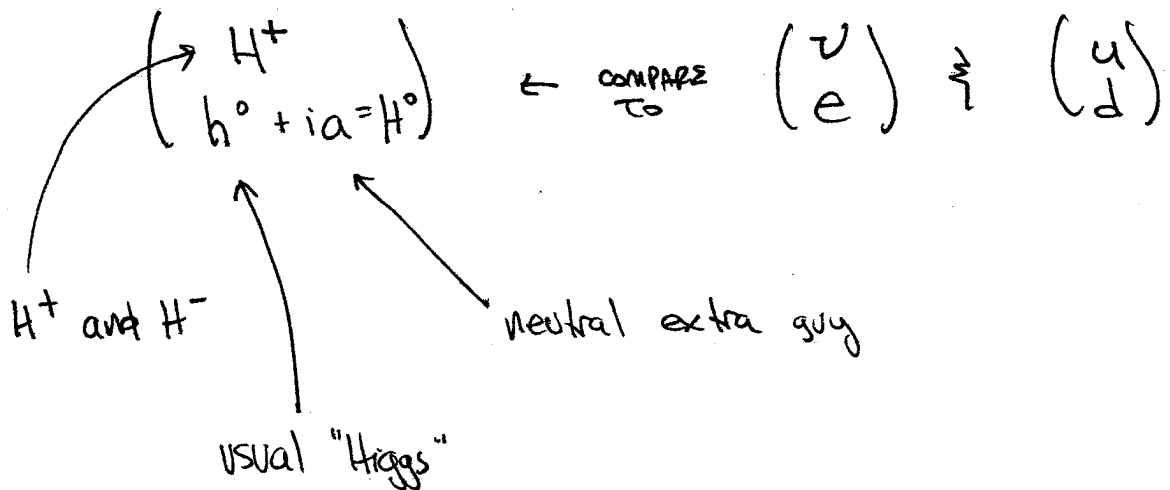 H⁺
h° + ia = H°
← COMPARE TO
ν
e
&
u
d
H⁺ and H⁻
neutral extra guy
usual "Higgs"